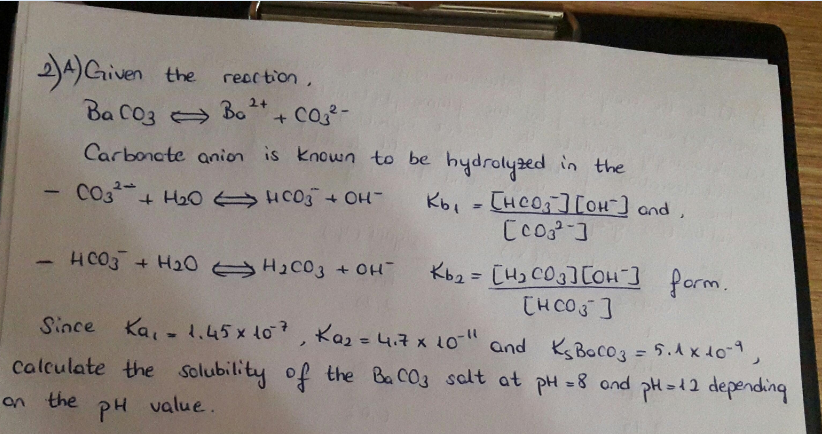 2)A) Given the reaction,
BaCO3 ⟺ Ba2+ + CO3 2-
Carbonate anion is known to be hydrolyzed in the
- CO3 2- + H2O ⟺ HCO3- + OH- Kb1 = [HCO3-][OH-] / [CO3 2-] and,
- HCO3- + H2O ⟺ H2CO3 + OH- Kb2 = [H2CO3][OH-] / [HCO3-] form.
Since Ka1 = 1.45 x 10-7, Ka2 = 4.7 x 10-11 and KsBaCO3 = 5.1 x 10-9,
calculate the solubility of the BaCO3 salt at pH = 8 and pH = 12 depending
on the pH value.